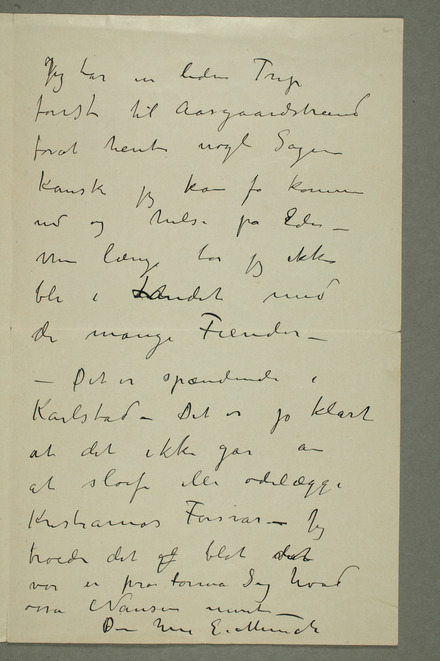 Jeg tar en liden Trip
først til Aasgaardstrand
forat hente nogle Sager
Kanske jeg kan få komme
ud og hilse på Eder –
Men længe tør jeg ikke
bli i Landet med
de mange Fiender –
– Det er spændende i
Karlstad – Det er jo klart
at det ikke gar an
at sløife eller ødelægge
Kristianias Forsvar – Jeg
troede det blot
var en pro forma Sag hvad
osså Nansen mente –
Din Ven E. Munch